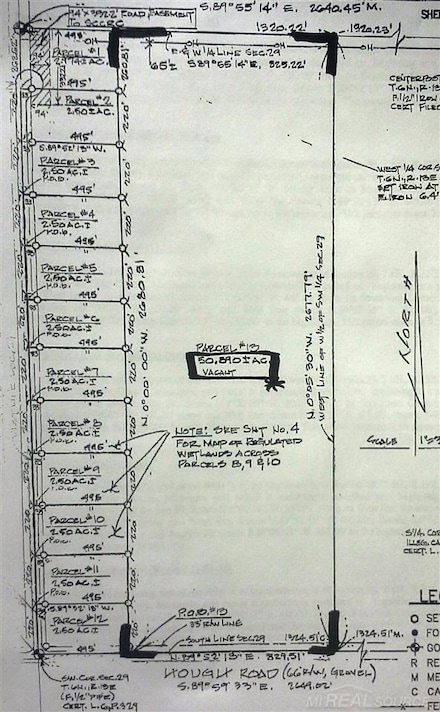 S.89°55'14" E. 2640.45' M.
94'x3322' ROAD EASEMENT
TO SCCRC
1320.22'
1320.23'
SHE
PARCEL #1
OH
OH
OH
E-W 1/4 LINE SEC.29
65'±
S.89°55'14"E. 825.22'
495'
PARCEL #2
2.50 AC.±
94'
495'
S.89°52'18"W.
CENTERPOST
CERT FILED
PARCEL #3
2.50 AC.±
P.O.B.
495'
WEST 1/4 COR. S
T.6N., R.13E
SET IRON AT
E/IRON 6.4'
PARCEL #4
2.50 AC.±
P.O.B.
495'
PARCEL #5
2.50 AC.±
P.O.B.
495'
N.0°00'00"W. 2680.81'
N.0°05'30"W. 2677.79'
WEST LINE OF W 1/2 OF SW 1/4 SEC.29
NORTH
PARCEL #6
2.50 AC.±
P.O.B.
495'
PARCEL #13
50.890± AC.
VACANT
PARCEL #7
2.50 AC.±
P.O.B.
495'
PARCEL #8
2.50 AC.±
P.O.B.
495'
NOTE: SEE SHT NO.4
FOR MAP OF REGULATED
WETLANDS ACROSS
PARCELS 8, 9 & 10
SCALE
PARCEL #9
2.50 AC.±
P.O.B.
495'
PARCEL #10
2.50 AC.±
P.O.B.
495'
PARCEL #11
2.50 AC.±
P.O.B.
495'
S.89°52'18"W.
PARCEL #12
2.50 AC.±
495'
P.O.B. #13
33' R/W LINE
SOUTH LINE SEC.29
1324.51'C.
1324.51'M.
N.89°52'13"E. 829.51'
HOUGH ROAD (66' R/W, GRAVEL)
S.89°59'33"E. 2649.02'
SW. COR. SEC. 29
T.6N., R.13E
(F. 1/2" PIPE)
CERT. L.6, P.329
ILLEG. CA
CERT. L.
LEG
SE
FO
GO
R RE
M ME
C CA
FE
MI REALSOURCE